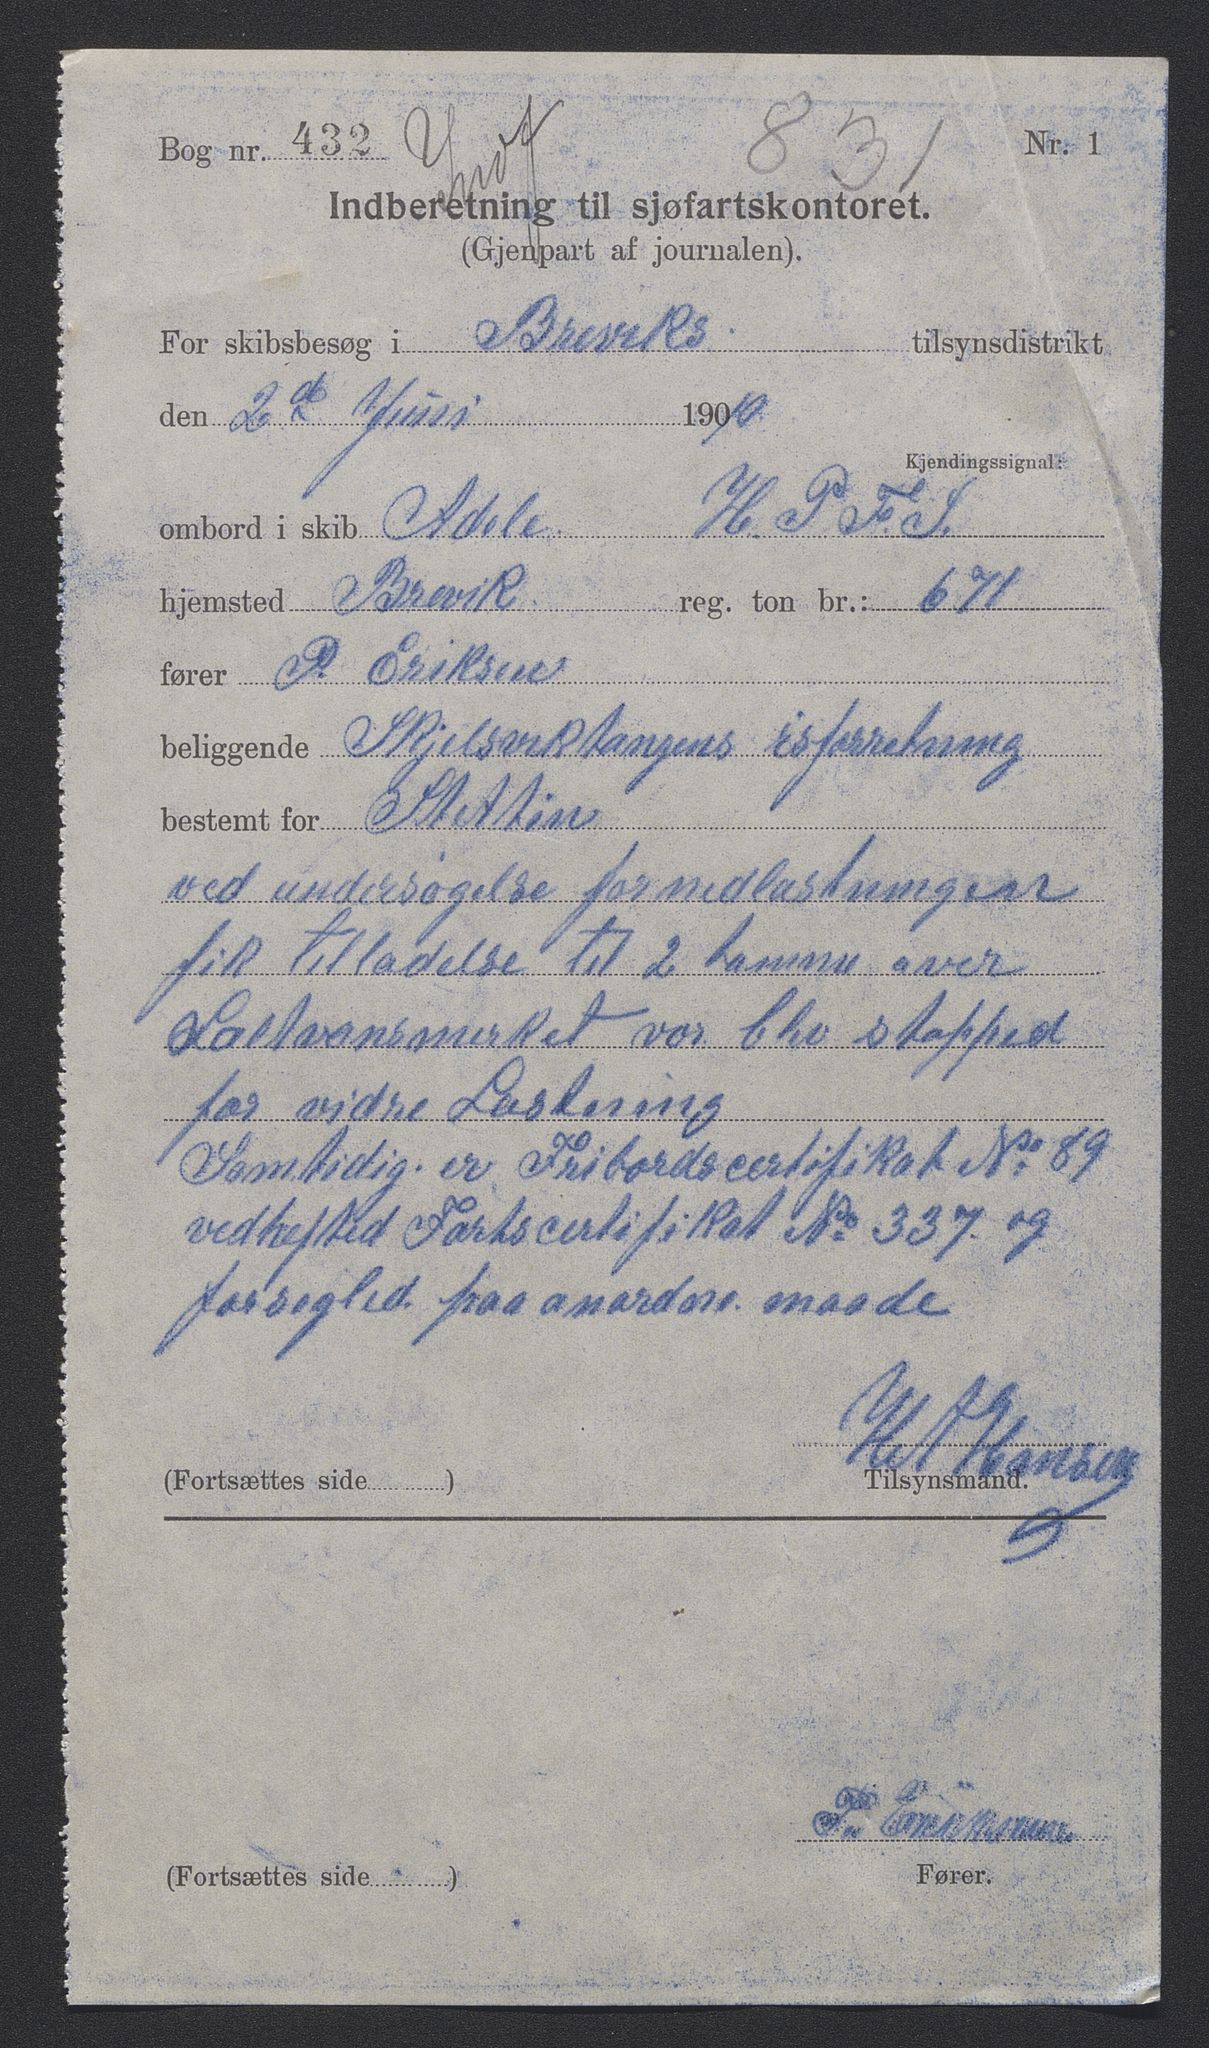 Bog nr. 432 831 Nr. 1
Indberetning til sjøfartskontoret.
(Gjenpart af journalen).
For skibsbesøg i Breviks tilsynsdistrikt
den 2d Juni 1910
Kjendingssignal:
ombord i skib Adele H. P. F. S.
hjemsted Brevik reg. ton br.: 671
fører P. Eriksen
beliggende Skjelsviktangens isforretning
bestemt for Stettin
ved undersøgelse for nedlastningen
fik tilladelse til 2 tomme over
vor blev stopped
for vidre Lastning
Samtidig er Fribordscertifikat No 89
vedhefted Fartscertifikat No 337. og
forsegled. paa anordne. maade
Hansen
(Fortsættes side ) Tilsynsmand.
Fører.
(Fortsættes side )